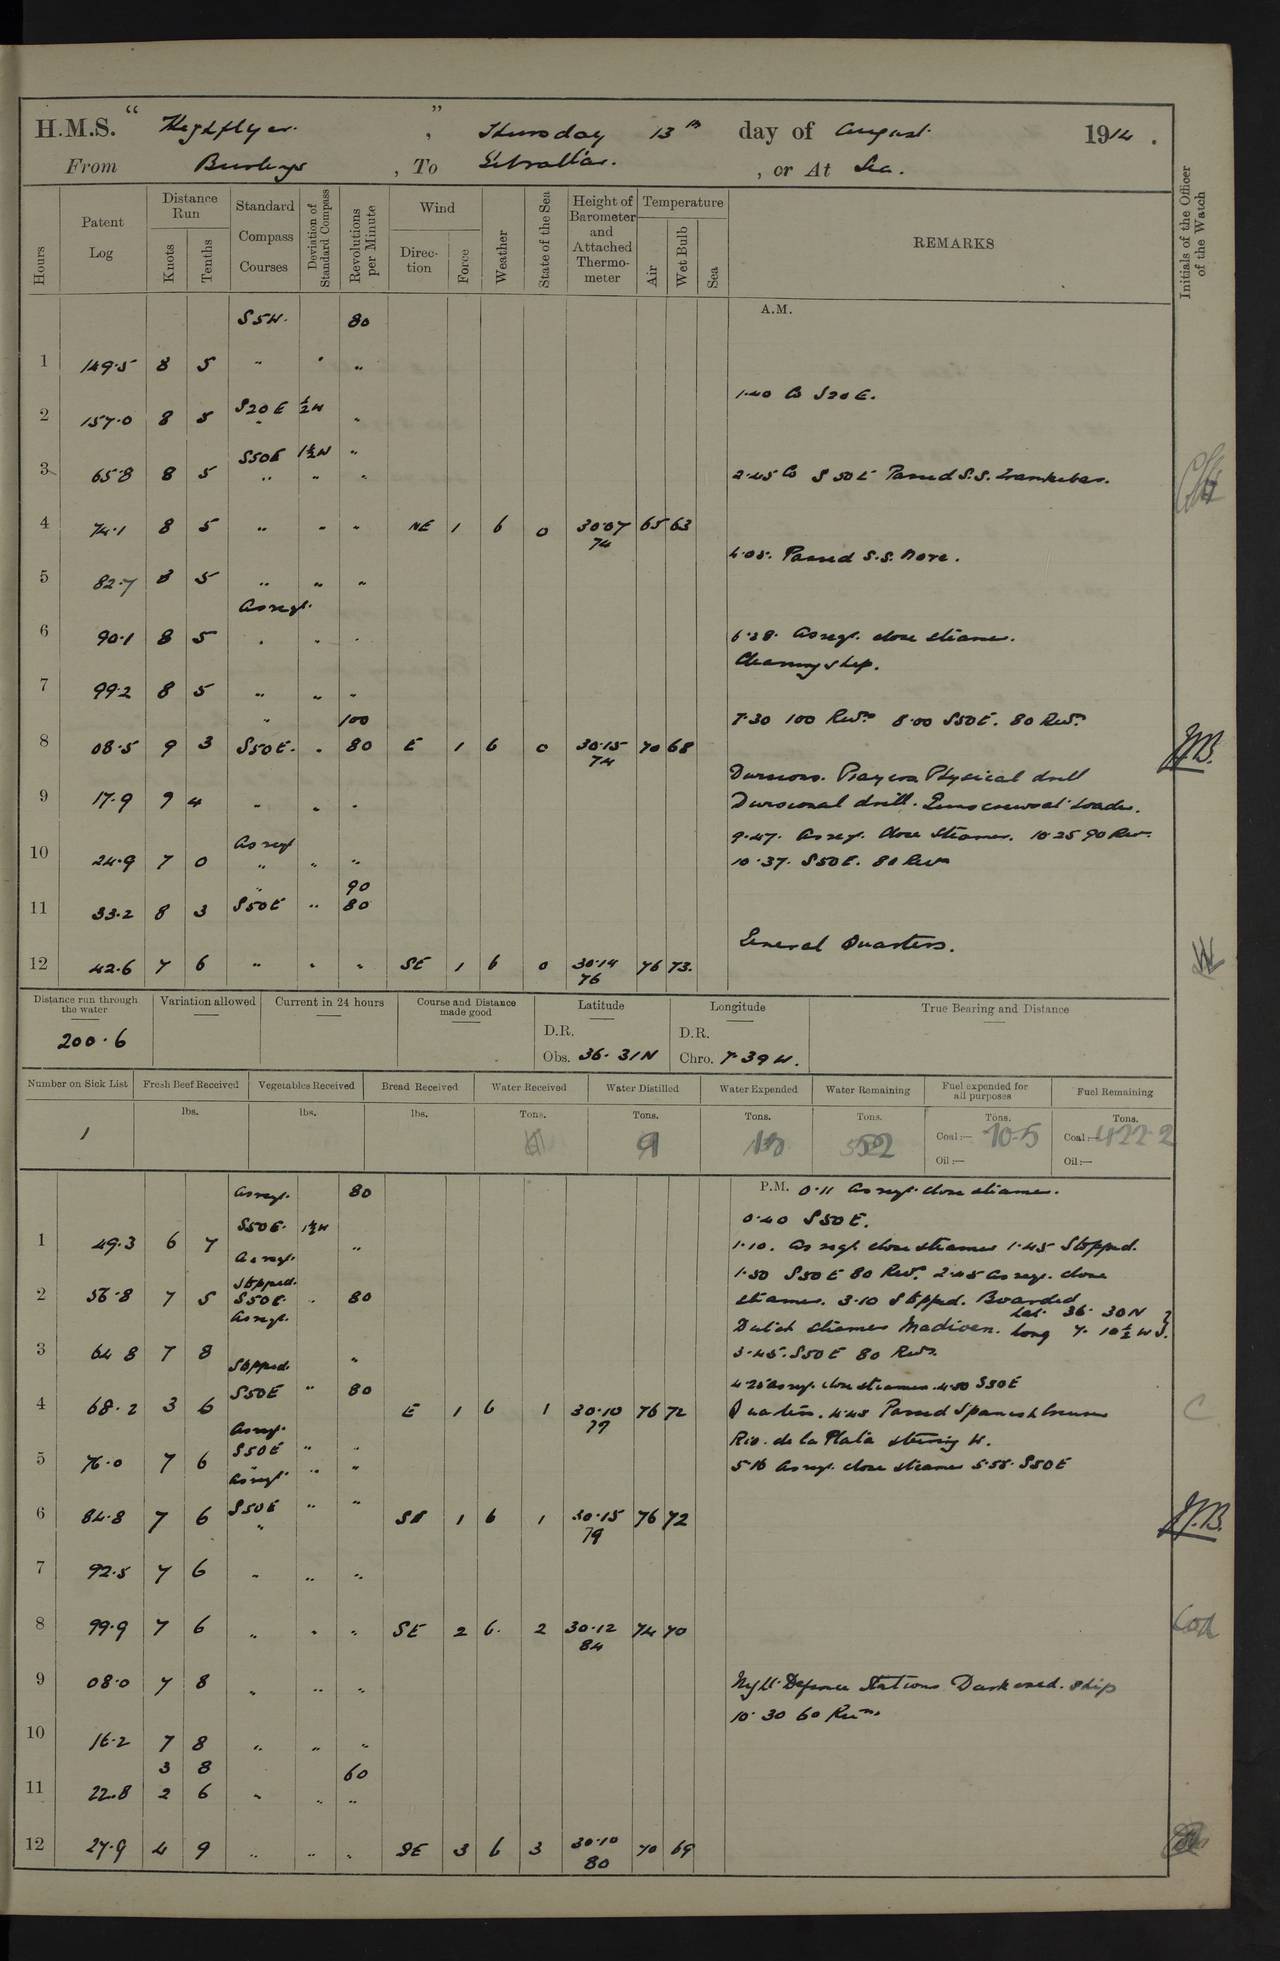 H.M.S. " Highflyer ", Thursday 13th day of August 1914.
From Burlings, To Gibraltar., or At Sea.
Hours Patent Log Distance Run Knots Tenths Standard Compass Courses Deviation of Standard Compass Revolutions per Minute Wind Direction Force Weather State of the Sea Height of Barometer and Attached Thermometer Temperature Air Wet Bulb Sea REMARKS Initials of the Officer of the Watch
A.M.
S5W. 80
1 149.5 8 5 " " "
1.40 Co S20E.
S20E ½W
2 157.0 8 5 " "
S50E 1½W "
3 65.8 8 5 " " "
2.45 Co S50E Passed S.S.
4 74.1 8 5 " " " NE 1 b 0 30.07 65 63
74
4.05. Passed S.S. Nore.
5 82.7 8 5 " " "
As reqt.
6 90.1 8 5 " " "
6.38. As reqt. close steamer.
Cleaning ship.
7 99.2 8 5 " " "
" 100
7.30 100 Revs. 8.00 S50E. 80 Revs.
8 08.5 9 3 S50E. " 80 E 1 b 0 30.15 70 68
74
Divisions. Prayers Physical drill
9 17.9 9 4 " " "
Divisional drill. Guns crews at Loader.
9.47. As reqt. Close Steamer. 10.25 90 Revs.
As reqt
10 24.9 7 0 " " "
10.37. S50E. 80 Revs
" 90
11 33.2 8 3 S50E " 80
General Quarters.
12 42.6 7 6 " " " SE 1 b 0 30.14 76 73.
76
Distance run through the water Variation allowed Current in 24 hours Course and Distance made good Latitude Longitude True Bearing and Distance
200.6 D.R. D.R.
Obs. 36.31N Chro. 7.39W.
Number on Sick List Fresh Beef Received Vegetables Received Bread Received Water Received Water Distilled Water Expended Water Remaining Fuel expended for all purposes Fuel Remaining
lbs. lbs. lbs. Tons. Tons. Tons. Tons. Tons. Tons.
1 9 Coal:— 70.5 Coal:— 422.2
Oil:— Oil:—
P.M. 0.11 As reqt. close steamer.
As reqt. 80
0.40 S50E.
S50E. 1½W
1 49.3 6 7 "
As reqt.
1.10. As reqt. close steamer 1.45 Stopped.
1.50 S50E 80 Revs. 2.45 As reqt. close
Stopped.
2 56.8 7 5 S50E. " 80
As reqt.
steamer. 3.10 Stopped. Boarded
Lat. 36.30N
Dutch steamer Madioen. Long 7.10½W
3 64.8 7 8 "
Stopped.
3.45. S50E 80 Revs.
S50E " 80
4.25 As reqt. close steamer. 4.50 S50E
4 68.2 3 6 E 1 b 1 30.10 76 72
79
Quarters. 4.48 Passed Spanish Cruiser
As reqt.
Rio. de la Plata steering W.
5 76.0 7 6 S50E " "
As reqt. " "
5.16 As reqt. close steamer 5.55. S50E
S50E " "
6 84.8 7 6 " SE 1 b 1 30.15 76 72
79
7 92.5 7 6 " " "
8 99.9 7 6 " " " SE 2 b. 2 30.12 74 70
84
9 08.0 7 8 " " "
Night Defence Stations Darkened ship
10.30 60 Revs.
10 16.2 7 8 " " "
3 8 60
11 22.8 2 6 " " "
12 27.9 4 9 " " " SE 3 b 3 30.10 70 69
80